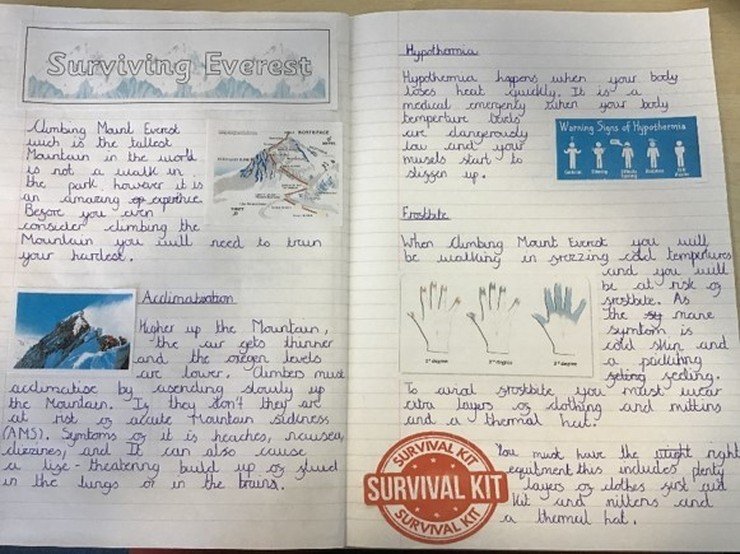 Surviving Everest
Climbing Mount Everest
wich is the tallest
Mountain in the world
is not a walk in
the park, however it is
an amazing experthce.
Before you even
consider climbing the
Mountain you will need to train
your hardest.
Acclimatisation
Higher up the Mountain,
the air gets thinner
and the oxegen levels
are lower. Climbers must
acclimatise by asending slowly up
the Mountain. If they don't they are
at risk of acute Mountain sickness
(AMS). Symtoms of it is heaches, nausea,
dizzines, and It can also cause
a life-theatening build up of fluid
in the lungs or in the brains.
Hypothermia
Hypothermia happens when your body
loses heat quickly. It is a
medical emergenty when your body
temperture
are dangerously
low and your
musels start to
stiffen up.
Warning Signs of Hypothermia
Frostbite
When climbing Mount Everest you will
be walking in frezzing cold tempertures
and you will
be at risk of
frostbite. As
the mane
symtom is
cold skin and
a prickling
feeling.
1st degree
2nd degree
3rd degree
To aviod frostbite you must wear
extra layers of clothing and mittins
and a thermal hat.
SURVIVAL KIT
SURVIVAL KIT
SURVIVAL KIT
You must have the right
equitment this includes plenty
layers of clothes first aid
kit and mittens and
a thermal hat.